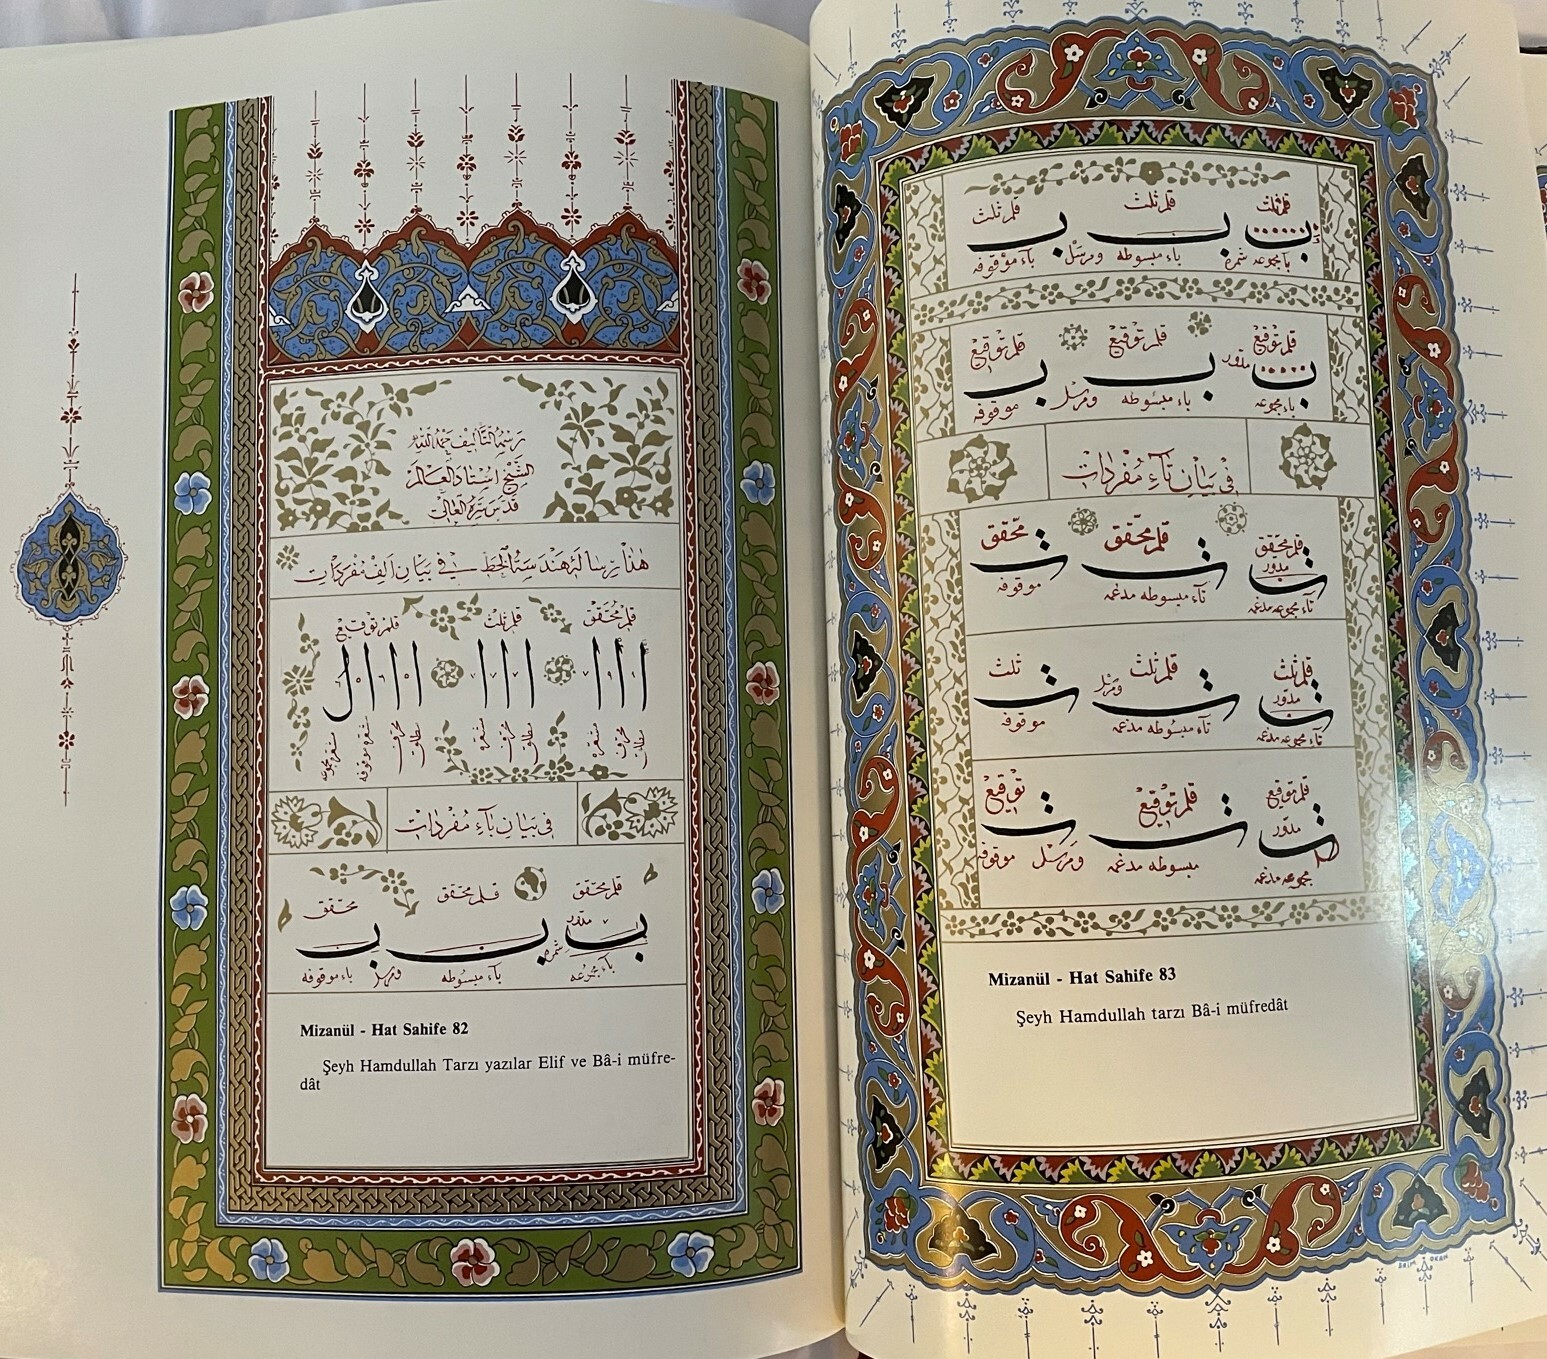 رسم التأليف حمد الله
الشيخ استاد العالم
قدس سره العالى
هذا رسالة هندسة الخط في بيان الف مفردات
قلم محقق قلم ثلث قلم توقيع
ا ا ا ا ا ا ا ا ا ل
في بيان باء مفردات
قلم محقق قلم محقق محقق
مدور
ب ب ب
باء مجموعه ثمره باء مبسوطه ومرسل باء موقوفه
Mizanül - Hat Sahife 82
Şeyh Hamdullah Tarzı yazılar Elif ve Bâ-i müfre-
dât
قلم ثلث قلم ثلث قلم ثلث
ب ب ب
باء مجموعه ثمره باء مبسوطه ومرسل باء موقوفه
قلم توقيع قلم توقيع قلم توقيع
مدور
ب ب ب
باء مجموعه باء مبسوطه ومرسل موقوفه
في بيان تاء مفردات
قلم محقق قلم محقق محقق
مدور
ت ت ت
تاء مجموعه مدغمه تاء مبسوطه مدغمه موقوفه
قلم ثلث قلم ثلث ثلث
مدور ومرسل
ت ت ت
تاء مجموعه مدغمه تاء مبسوطه مدغمه موقوفه
قلم توقيع قلم توقيع توقيع
مدور
ت ت ت
مجموعه مدغمه مبسوطه مدغمه ومرسل موقوفه
Mizanül - Hat Sahife 83
Şeyh Hamdullah tarzı Bâ-i müfredât